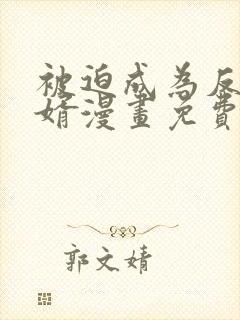 被迫成為反
婿漫畫免費
郭文婧